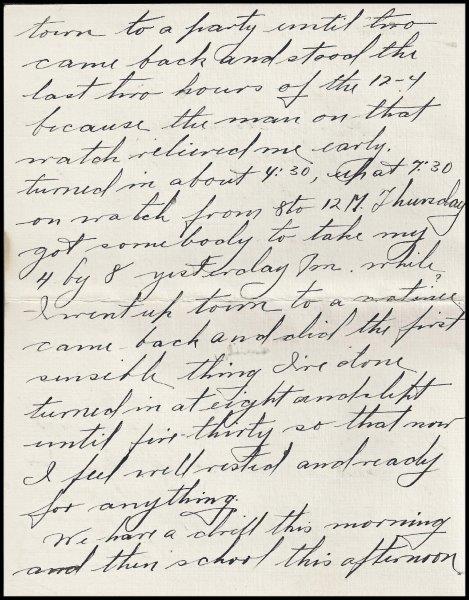 town to a party until two
came back and stood the
last two hours of the 12-4
because the man on that
watch relieved me early.
turned in about 4:30, up at 7:30
on watch from 8 to 12 M. Thursday
got somebody to take my
4 by 8 yesterday Pm. while
I went up town to a matinee
came back and did the first
sensible thing I've done
turned in at eight and slept
until five thirty so that now
I feel well rested and ready
for anything.
We have a drill this morning
and then school this afternoon